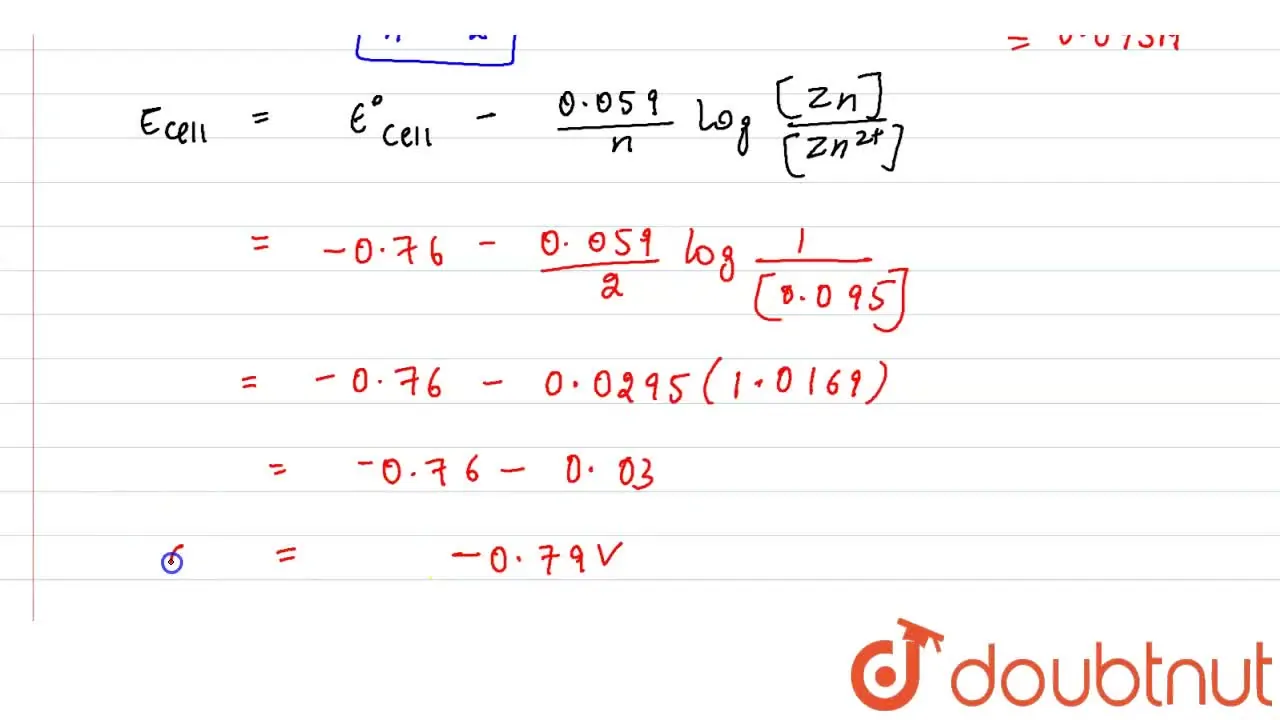 = 0.095M
E cell = E° cell - 0.059/n log [Zn]/[Zn2+]
= -0.76 - 0.059/2 log 1/[0.095]
= -0.76 - 0.0295(1.0169)
= -0.76 - 0.03
= -0.79V
doubtnut